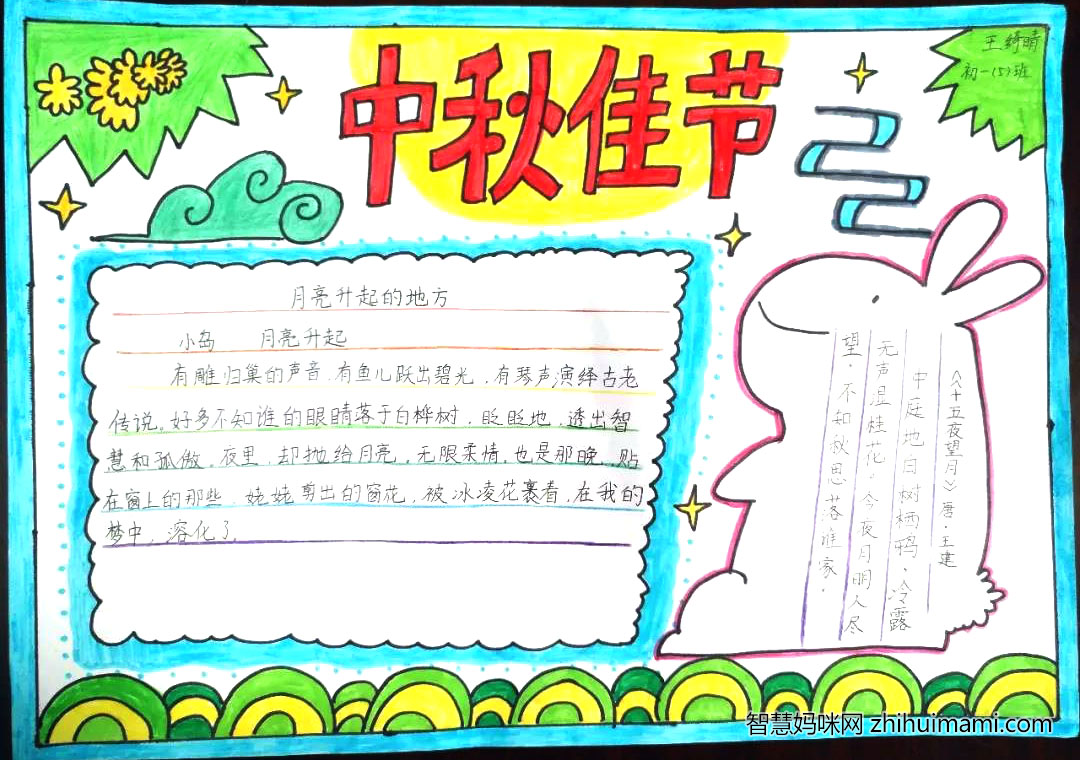 中秋佳节
王绮晴
初一(5)班
月亮升起的地方
小岛 月亮升起
有雕归巢的声音,有鱼儿跃出碧光,有琴声演绎古老
传说。好多不知谁的眼睛落于白桦树,眨眨地,透出智
慧和孤傲。夜里,却抛给月亮,无限柔情,也是那晚,贴
在窗上的那些,姥姥剪出的窗花,被冰凌花裹着,在我的
梦中,溶化了.
《十五夜望月》唐·王建
中庭地白树栖鸦,冷露
无声湿桂花。今夜月明人尽
望,不知秋思落谁家.
智慧妈咪网 zhihuimami.com